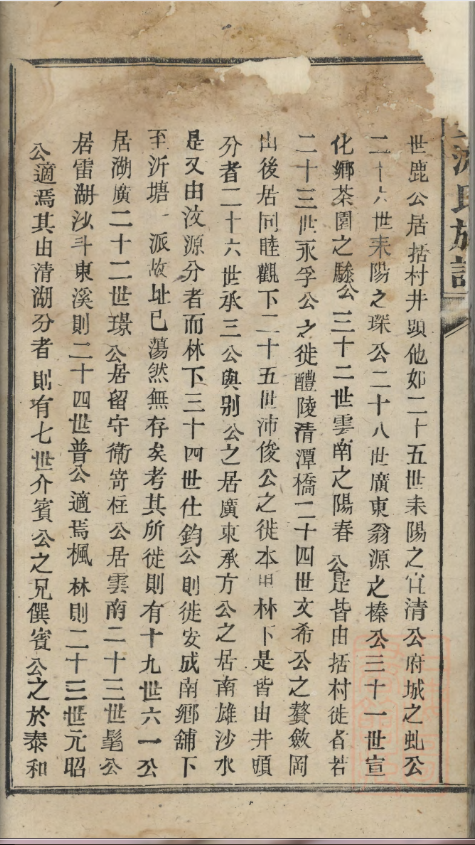 世鹿公居括村井頭他如二十五世耒陽之宜清公府城之虬公
二十六世耒陽之琛公二十八世廣東翁源之榛公三十一世宣
化鄉茶園之驂公三十二世雲南之陽春公是皆由括村徙者若
二十三世永孚公之徙醴陵清潭橋二十四世文希公之贅斂岡
山後居同睦觀下二十五世沛俊公之徙本田林下是皆由井頭
分者二十六世承三公與别公之居廣東承方公之居南雄沙水
是又由汶源分者而林下三十四世仕鈞公則徙安成南鄉舖下
至沂塘一派故址已蕩然無存矣考其所徙則有十九世六一公
居湖廣二十二世璟公居留守衛笴枉公居雲南二十三世髦公
居雷湖沙斗東溪則二十四世普公適焉楓林則二十三世元昭
公適焉其由清湖分者則有七世介賓公之兄僎賓公之於泰和
氏族譜